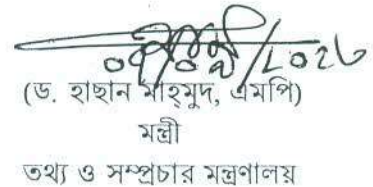 (ড. হাছান মাহ্‌মুদ, এমপি)
মন্ত্রী
তথ্য ও সম্প্রচার মন্ত্রণালয়